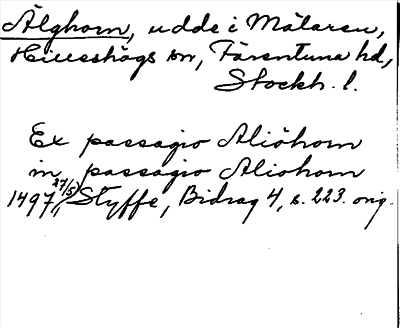 Älghorn, udde i Mälaren,
Hilleshögs sn, Färentuna hd,
Stockh. l.
Ex passagio Aliöhorn
in passagio Aliohorn
1497 27/5, Styffe, Bidrag 4, s. 223. orig.